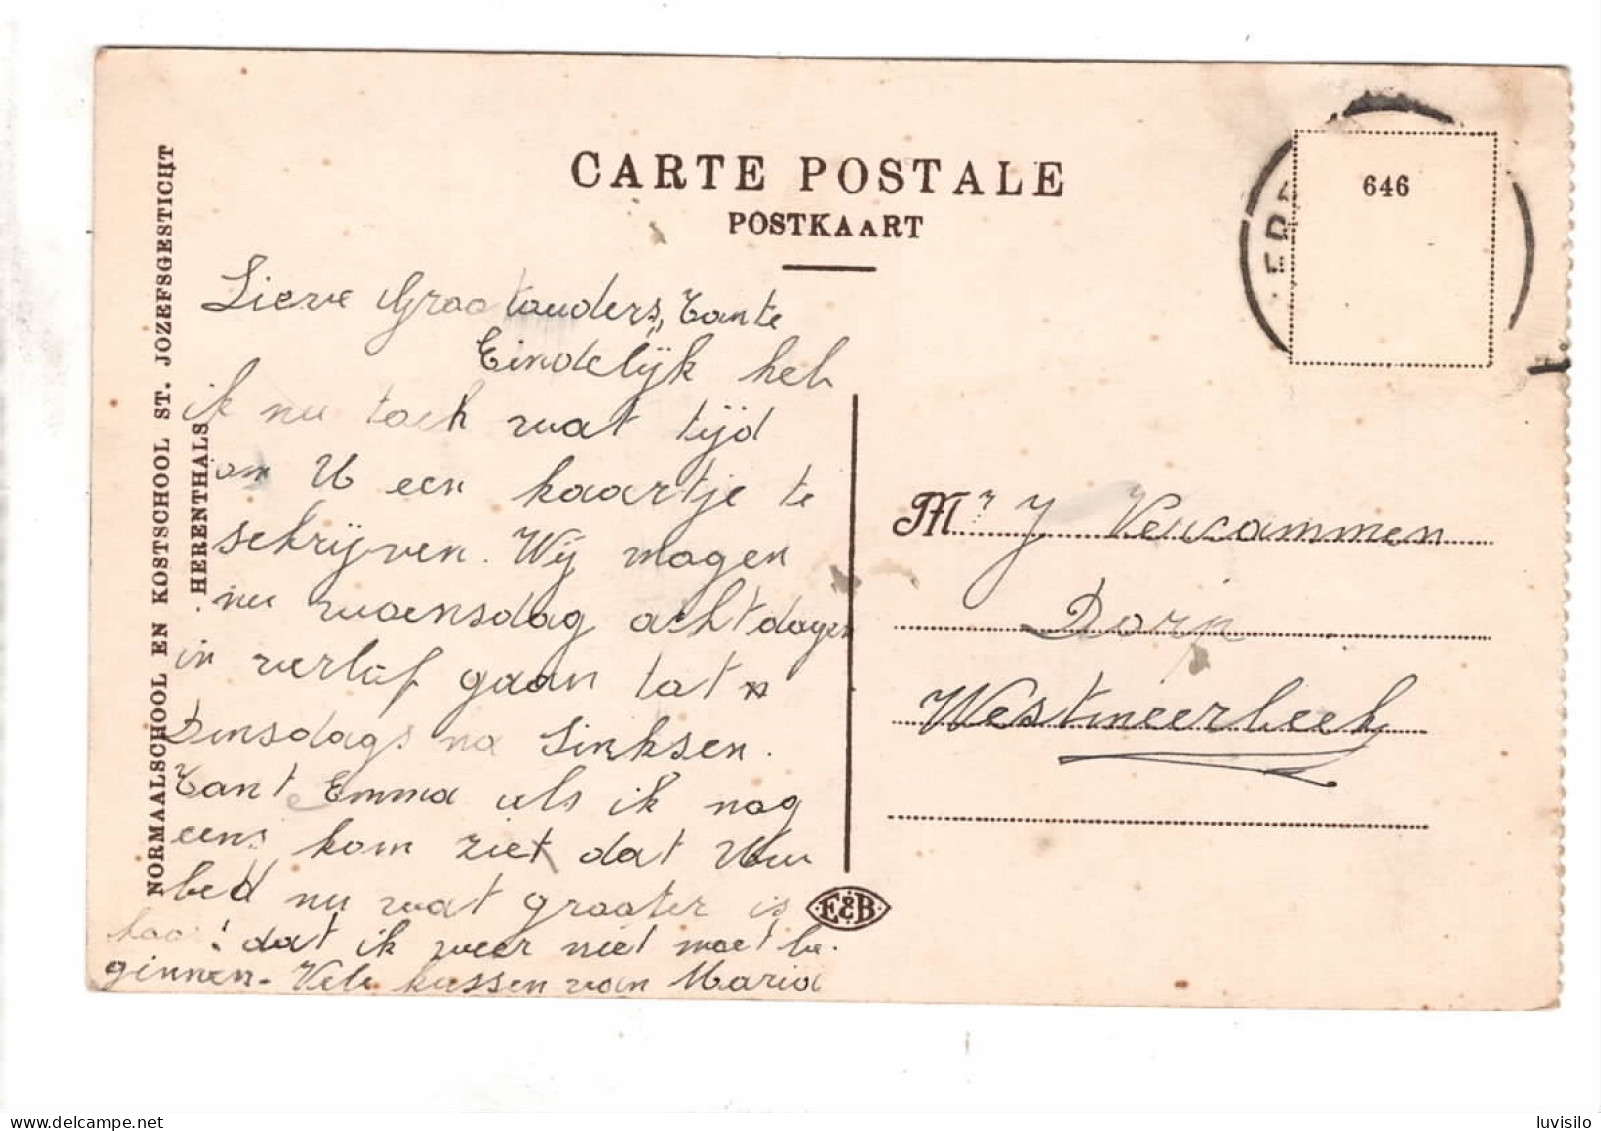 CARTE POSTALE
POSTKAART
646
NORMAALSCHOOL EN KOSTSCHOOL ST. JOZEFSGESTICHT
HERENTHALS.
Lieve Grootouders, Tante
Eindelijk heb
ik nu toch wat tijd
om U een kaartje te
schrijven. Wij mogen
nu woensdag acht dagen
in verlof gaan tot
Dinsdags na Sinksen.
Tant Emma als ik nog
eens kom ziet dat Uw
bed nu wat grooter is
hoor! dat ik weer niet moet be-
ginnen. Vele kussen van Maria
E&B
Mr J Vercammen
Dorp
Westmeerbeek
delcampe.net
luvisilo